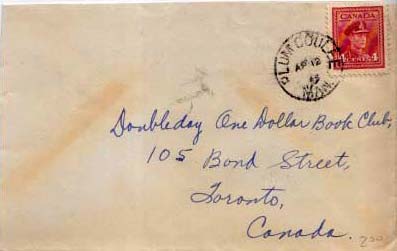 CANADA
4 CENTS 4
PLUM COULEE
AP 12
MAN.
Doubleday One Dollar Book Club,
105 Bond Street,
Toronto,
Canada.
200